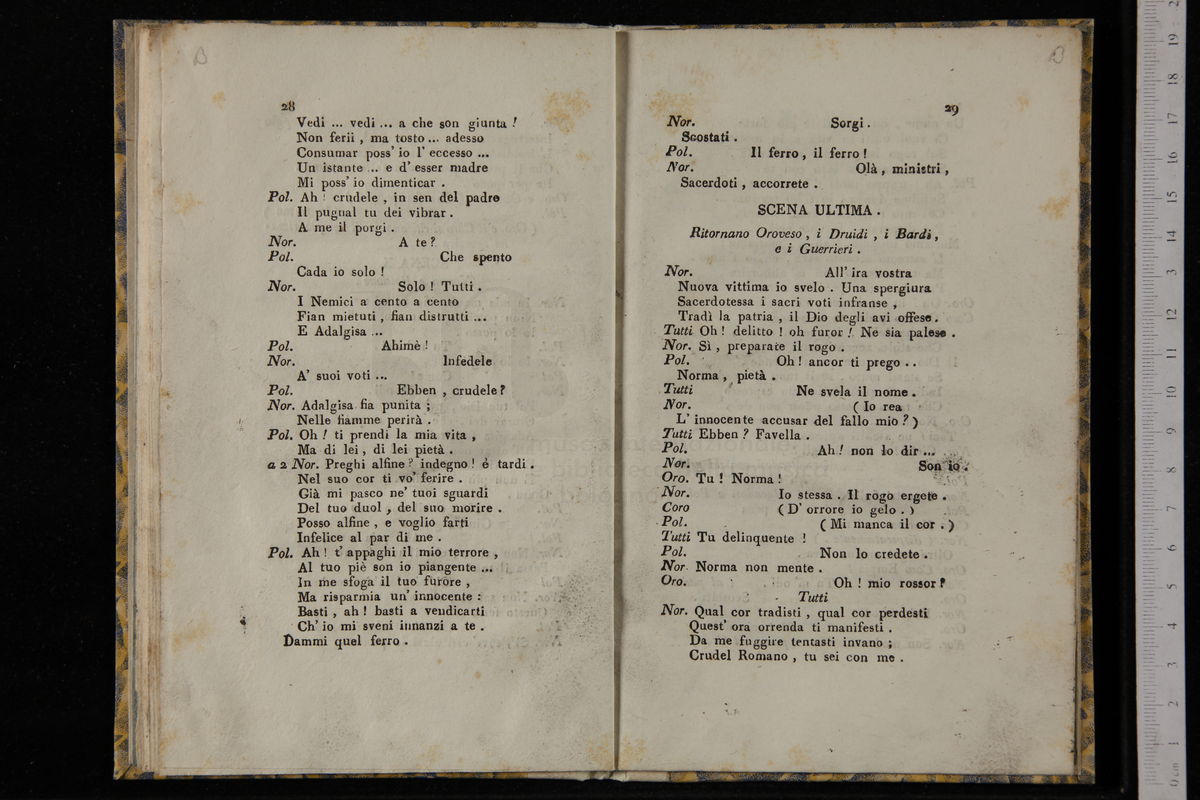 28
Vedi ... vedi ... a che son giunta !
Non ferii , ma tosto ... adesso
Consumar poss' io l' eccesso ...
Un istante ... e d' esser madre
Mi poss' io dimenticar .
Pol. Ah ! crudele , in sen del padre
Il pugnal tu dei vibrar .
A me il porgi .
Nor. A te ?
Pol. Che spento
Cada io solo !
Nor. Solo ! Tutti .
I Nemici a cento a cento
Fian mietuti , fian distrutti ...
E Adalgisa ...
Pol. Ahimè !
Nor. Infedele
A' suoi voti ...
Pol. Ebben , crudele ?
Nor. Adalgisa fia punita ;
Nelle fiamme perirà .
Pol. Oh ! ti prendi la mia vita ,
Ma di lei , di lei pietà .
a 2 Nor. Preghi alfine ? indegno ! é tardi .
Nel suo cor ti vo' ferire .
Già mi pasco ne' tuoi sguardi
Del tuo duol , del suo morire .
Posso alfine , e voglio farti
Infelice al par di me .
Pol. Ah ! t' appaghi il mio terrore ,
Al tuo piè son io piangente ...
In me sfoga il tuo furore ,
Ma risparmia un' innocente :
Basti , ah ! basti a vendicarti
Ch' io mi sveni innanzi a te .
Dammi quel ferro .
29
Nor. Sorgi .
Scostati .
Pol. Il ferro , il ferro !
Nor. Olà , ministri ,
Sacerdoti , accorrete .
SCENA ULTIMA .
Ritornano Oroveso , i Druidi , i Bardi ,
e i Guerrieri .
Nor. All' ira vostra
Nuova vittima io svelo . Una spergiura
Sacerdotessa i sacri voti infranse ,
Tradì la patria , il Dio degli avi offese .
Tutti Oh ! delitto ! oh furor ! Ne sia palese .
Nor. Sì , preparate il rogo .
Pol. Oh ! ancor ti prego . .
Norma , pietà .
Tutti Ne svela il nome .
Nor. ( Io rea
L' innocente accusar del fallo mio ? )
Tutti Ebben ? Favella .
Pol. Ah ! non lo dir ...
Nor. Son io .
Oro. Tu ! Norma !
Nor. Io stessa . Il rogo ergete .
Coro ( D' orrore io gelo . )
Pol. ( Mi manca il cor . )
Tutti Tu delinquente !
Pol. Non lo credete .
Nor. Norma non mente .
Oro. Oh ! mio rossor ?
Tutti
Nor. Qual cor tradisti , qual cor perdesti
Quest' ora orrenda ti manifesti .
Da me fuggire tentasti invano ;
Crudel Romano , tu sei con me .